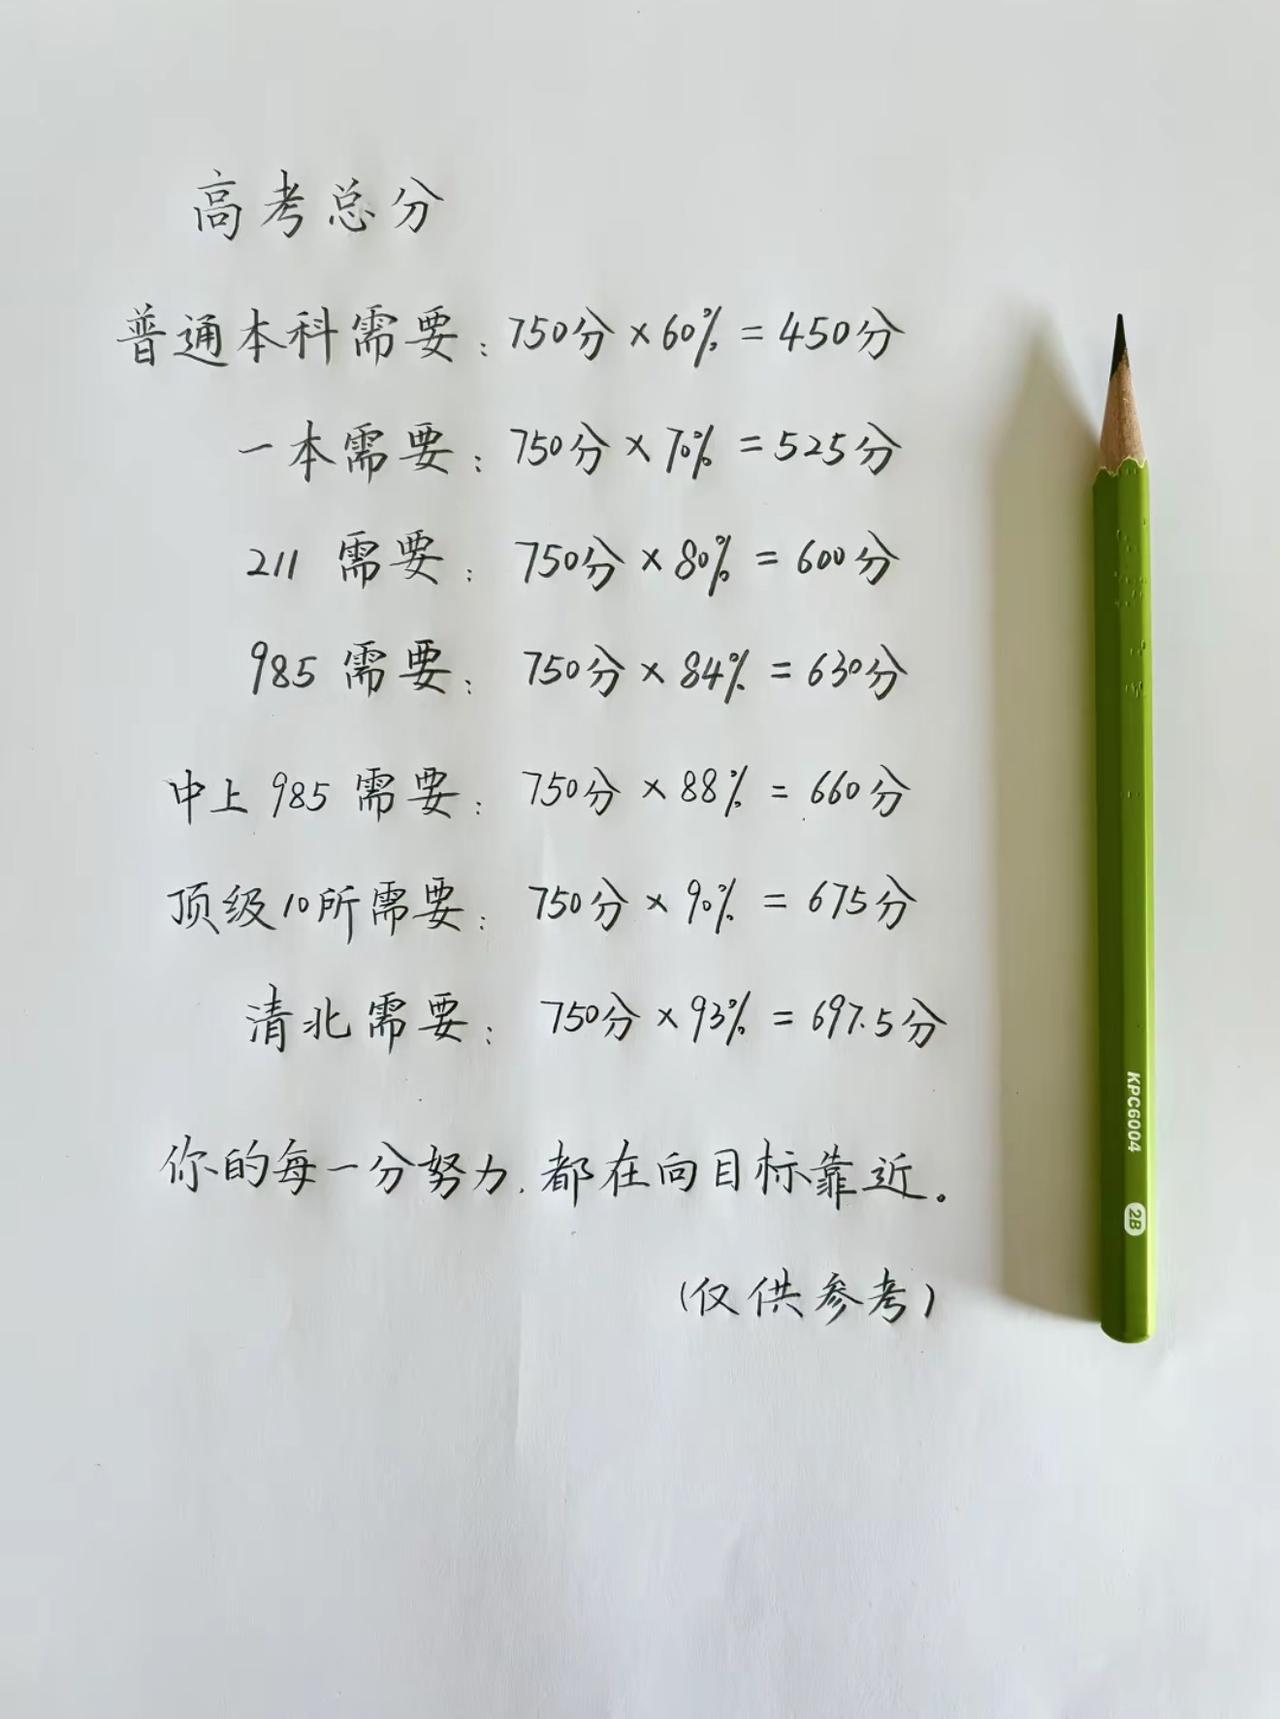 高考总分
普通本科需要：750分×60%=450分
一本需要：750分×70%=525分
211需要：750分×80%=600分
985需要：750分×84%=630分
中上985需要：750分×88%=660分
顶级10所需要：750分×90%=675分
清北需要：750分×93%=697.5分
你的每一分努力，都在向目标靠近。
（仅供参考）
KPC6004 2B